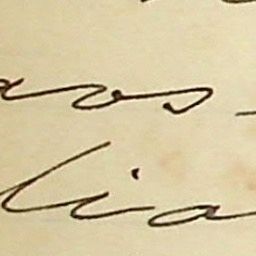 aos -
lia